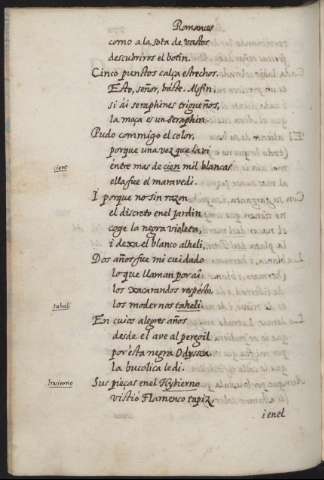 Romances
como a la sota de vastos
descubriros el botin.
Cinco puntos calça estrechos.
Esto, señor, baste. Alfin,
si ái seraphines trigueños,
la moça es un seraphin.
Pudo conmigo el color,
porque una vez que la vi
entre mas de cien mil blancas
ella fue el maravedi.
I porque no sin razon
el discreto en el jardin
coge la negra violeta,
i dexa el blanco alheli,
Dos años fue mi cuidado
lo que llaman por ai
los xacarandos respeto,
los modernos taheli.
tahali
En cuios alegres años
desde el ave al peregil
por esta negra Odyssea
la bucolica le di.
Invierno
Sus pieças en el Hybierno
vistió Flamenco tapiz,
i en el